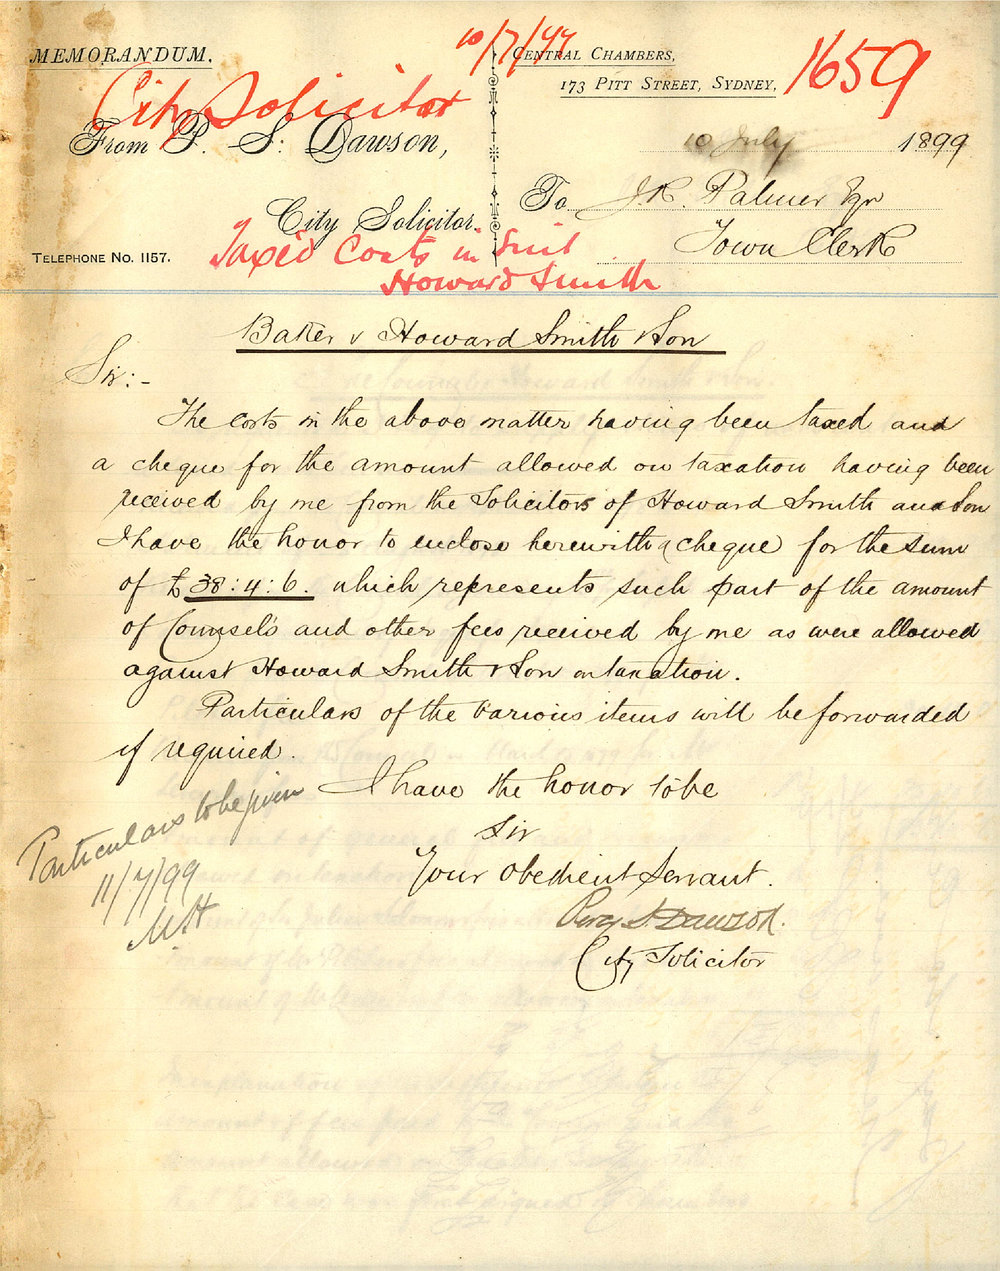 MEMORANDUM.
10/7/99
CENTRAL CHAMBERS,
173 PITT STREET, SYDNEY,
1659
City Solicitor
From P. S. Dawson,
10 July 1899
City Solicitor.
To J.R. Palmer Esqr
Town Clerk
TELEPHONE No. 1157.
Taxed Costs in Suit
Howard Smith
Baker v Howard Smith & Son
Sir:-
The costs in the above matter having been taxed and
a cheque for the amount allowed on taxation having been
received by me from the Solicitors of Howard Smith and Son
I have the honor to enclose herewith a cheque for the sum
of £38:4:6. which represents such part of the amount
of Counsel's and other fees received by me as were allowed
against Howard Smith & Son on taxation.
Particulars of the various items will be forwarded
if required.
I have the honor to be
Sir
Your Obedient Servant.
Percy S. Dawson.
City Solicitor
Particulars to be given
11/7/99